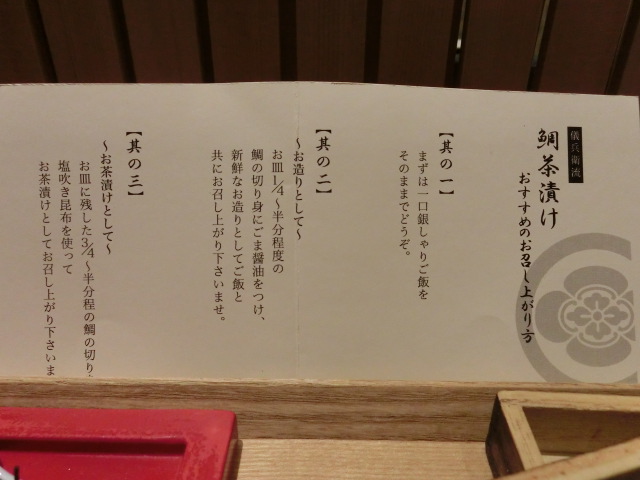 儀兵衛流
鯛茶漬け
おすすめのお召し上がり方
【其の一】
まずは一口銀しゃりご飯を
そのままでどうぞ。
【其の二】
～お造りとして～
お皿1/4～半分程度の
鯛の切り身にごま醤油をつけ、
新鮮なお造りとしてご飯と
共にお召し上がり下さいませ。
【其の三】
～お茶漬けとして～
お皿に残した3/4～半分程の鯛の切り
塩吹き昆布を使って
お茶漬けとしてお召し上がり下さいま